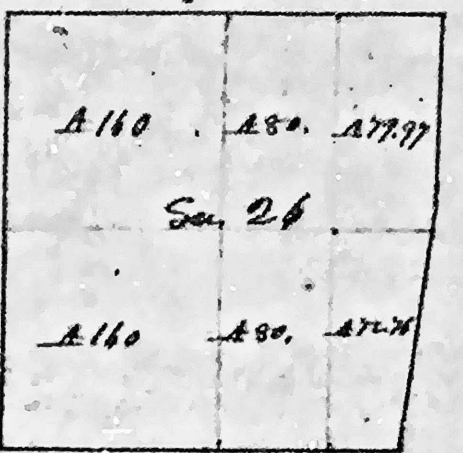 A 160 A 80. A 79.97
Sec. 26
A 160 A 80. A 72.76